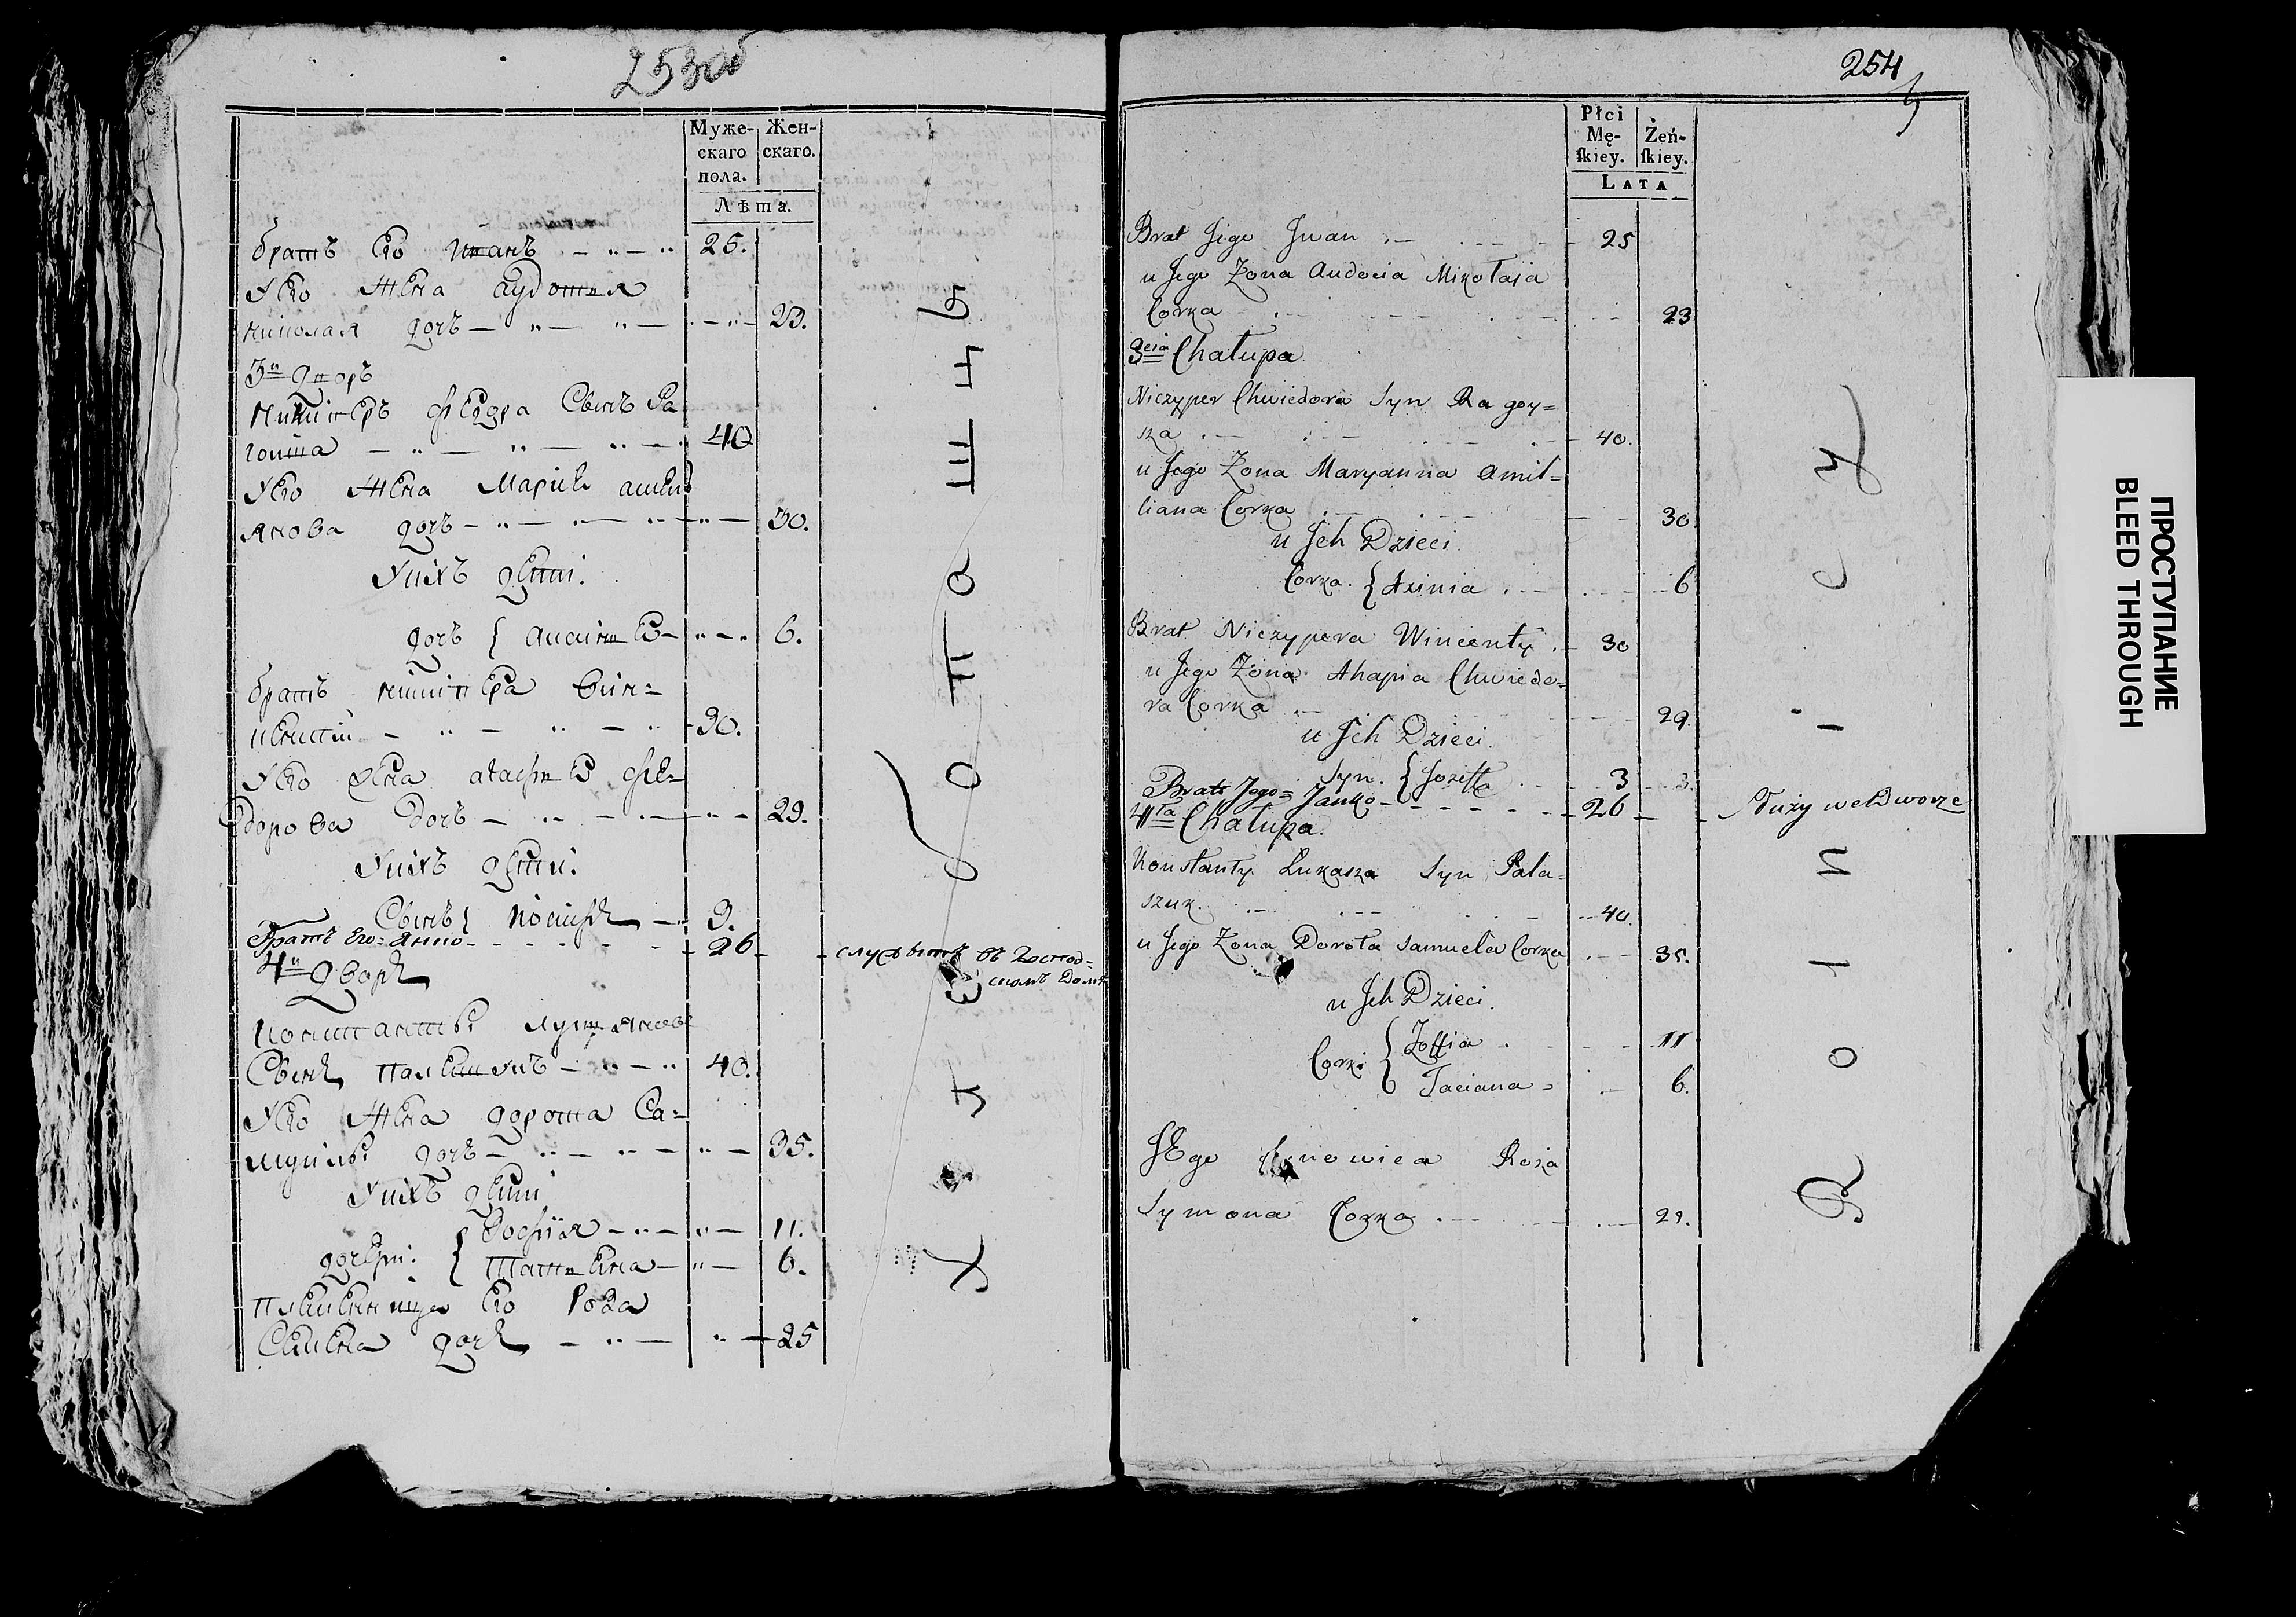 253об
Муже-
скаго
пола.
Жен-
скаго.
Лѣта.
братъ Его Иванъ 25.
УЕго жена аудотия
николая дочъ 23.
3й дворъ
Ничиперъ федра Сынъ Ра
гойша 40
УЕго жена Марья амил
янова дочъ 30.
Уихъ дети.
дочъ { аксинье 6.
братъ ничипера вин-
центи 30.
УЕго жена агафие фе-
дорова дочъ 29.
Уихъ дети.
Сынъ { иосифъ 3.
братъ Его Янко 26 служитъ въ господ-
скомъ доме
4й дворъ
константы лукянов
Сынъ палешукъ 40.
УЕго жена дорота Са-
муилы дочъ 35.
Уихъ дети
дочери: { Зофiя 11.
татиена 6.
племенница Его Роза
Семена дочъ 25
Хлебопашецъ
254
Płci
Mę-
ſkiey.
Żeń-
ſkiey.
LATA
Brat Jego Jwan 25
u Jego Żona Audocia Mikołaia
Corka 23
3cia Chałupa
Niczyper Chwiedora Syn Ragoy-
sza 40.
u Jego Żona Maryanna Amil-
liana Corka 30.
u Jch Dzieci.
Corka. { Axinia 6
Brat Niczypera Wincenty 30
u Jego Żona Ahapia Chwiedo-
ra Corka 29.
u Jch Dzieci.
Syn. { Jozeff 3
Brat Jego Janko 26 Służy we Dworze
4ta Chałupa.
Konstanty Łukasza Syn Pala-
szuk 40.
u Jego Żona Dorota Samuela Corka 35.
u Jch Dzieci.
Corki { Zoffia 11
Taciana 6.
JEgo Synowica Roza
Symona Corka 25.
Rolniceż
ПРОСТУПАНИЕ
BLEED THROUGH